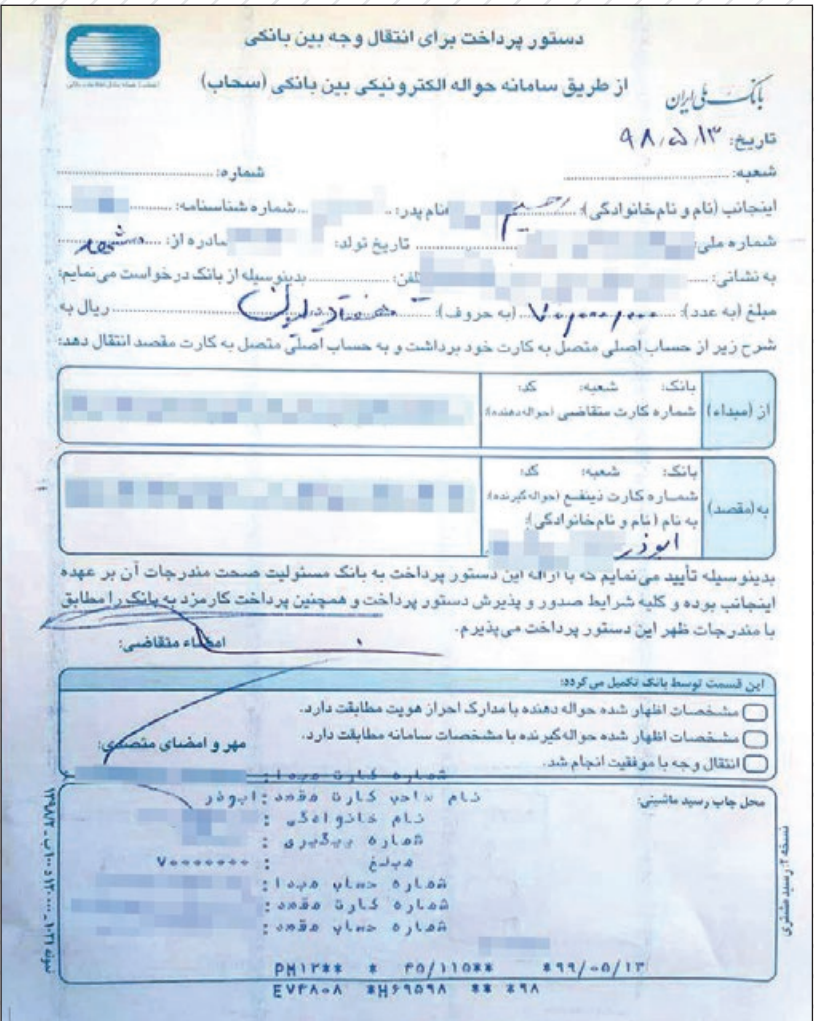 دستور پرداخت برای انتقال وجه بین بانکی
از طریق سامانه حواله الکترونیکی بین بانکی (سحاب)
بانک ملی ایران
تاریخ: ۹۸،۵،۱۳
شعبه: شماره:
اینجانب (نام و نام خانوادگی): رحیم نام پدر: شماره شناسنامه:
شماره ملی: تاریخ تولد: صادره از: مشهد
به نشانی: تلفن: بدینوسیله از بانک درخواست می‌نمایم:
مبلغ (به عدد): ۷۰،۰۰۰،۰۰۰ (به حروف): ریال به
شرح زیر از حساب اصلی متصل به کارت خود برداشت و به حساب اصلی متصل به کارت مقصد انتقال دهد:
از (مبداء)
بانک: شعبه: کد:
شماره کارت متقاضی (حواله‌دهنده):
به (مقصد)
بانک: شعبه: کد:
شماره کارت ذینفع (حواله‌گیرنده):
به نام (نام و نام خانوادگی):
ابوذر
بدینوسیله تأیید می‌نمایم که با ارائه این دستور پرداخت به بانک مسئولیت صحت مندرجات آن بر عهده
اینجانب بوده و کلیه شرایط صدور و پذیرش دستور پرداخت و همچنین پرداخت کارمزد به بانک را مطابق
با مندرجات ظهر این دستور پرداخت می‌پذیرم.
امضاء متقاضی:
این قسمت توسط بانک تکمیل می‌گردد:
مشخصات اظهار شده حواله دهنده با مدارک احراز هویت مطابقت دارد.
مشخصات اظهار شده حواله گیرنده با مشخصات سامانه مطابقت دارد.
انتقال وجه با موفقیت انجام شد.
مهر و امضای متصدی:
محل چاپ رسید ماشینی:
شماره کارت مبدا:
نام صاحب کارت مقصد: ابوذر
نام خانوادگی:
شماره پیگیری:
مبلغ: ۷۰۰۰۰۰۰۰
شماره حساب مبدا:
شماره کارت مقصد:
شماره حساب مقصد:
نسخه ۲: رسید مشتری